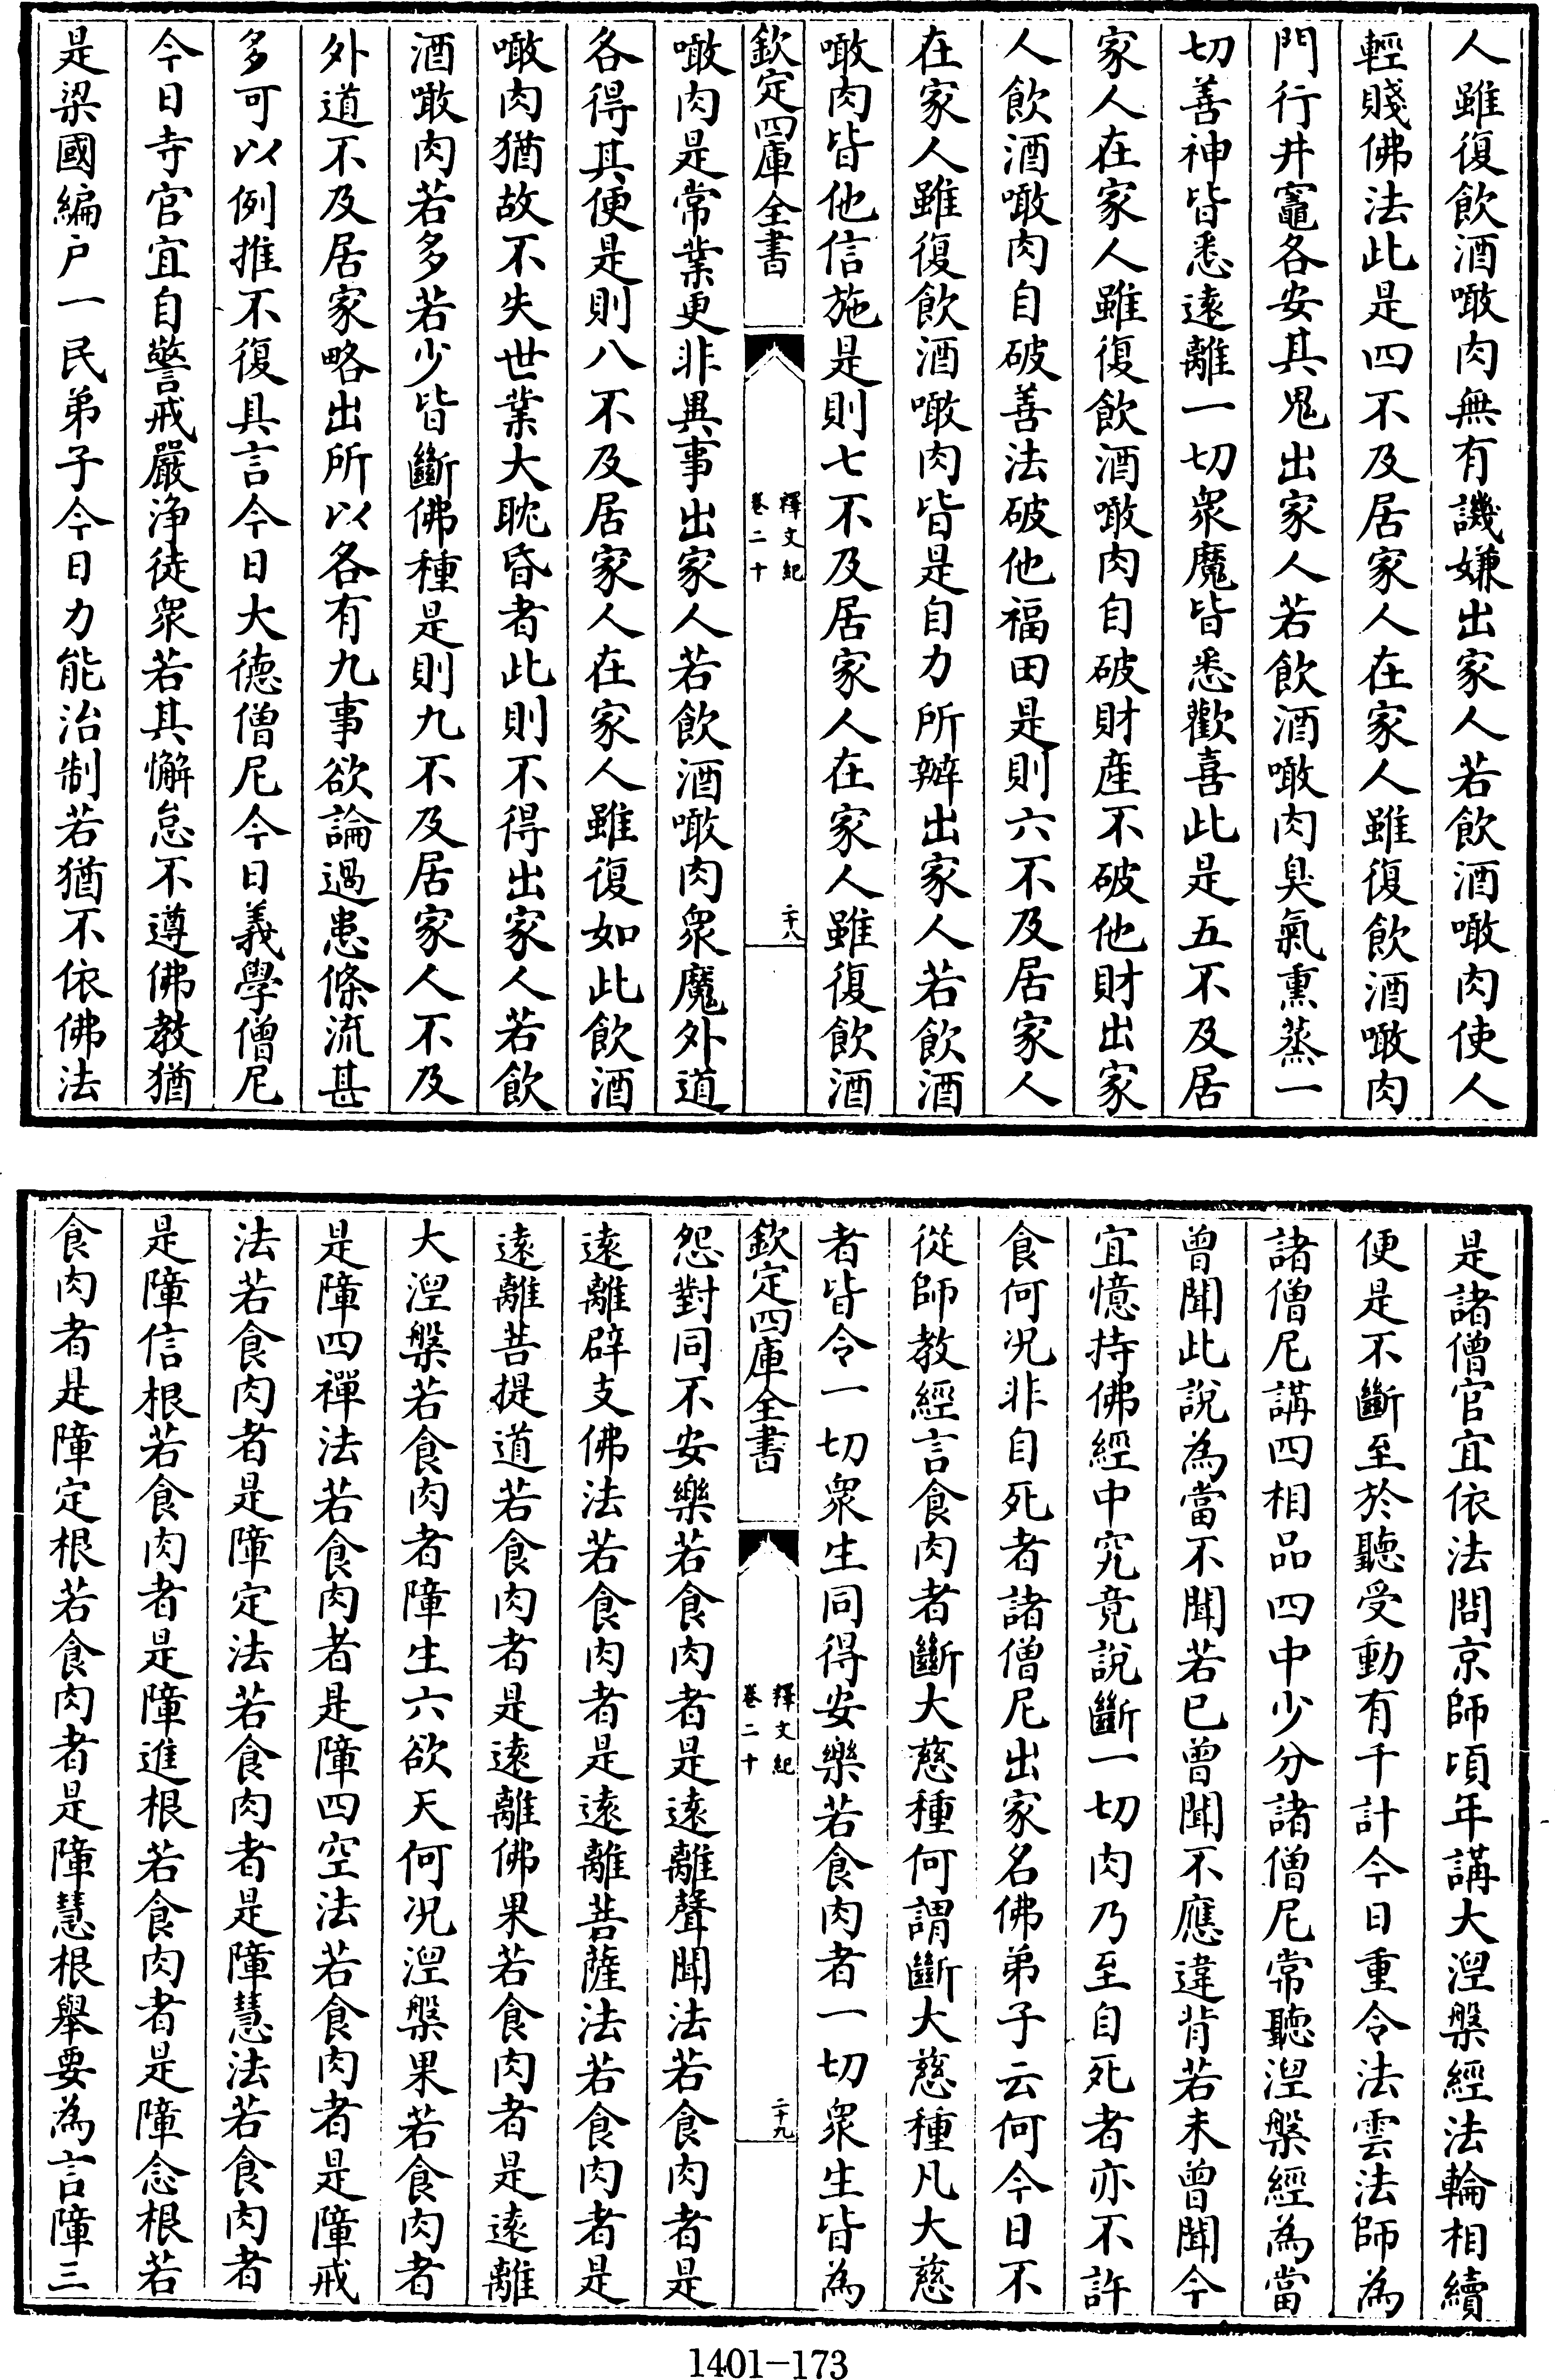 人雖復飲酒噉肉無有譏嫌出家人若飲酒噉肉使人
輕賤佛法此是四不及居家人在家人雖復飲酒噉肉
門行井竈各安其鬼出家人若飲酒噉肉臭氣熏蒸一
切善神皆悉遠離一切衆魔皆悉歡喜此是五不及居
家人在家人雖復飲酒噉肉自破財産不破他財出家
人飲酒噉肉自破善法破他福田是則六不及居家人
在家人雖復飲酒噉肉皆是自力所辦出家人若飲酒
噉肉皆他信施是則七不及居家人在家人雖復飲酒
欽定四庫全書
釋文紀
卷二十
二十八
噉肉是常業更非異事出家人若飲酒噉肉衆魔外道
各得其便是則八不及居家人在家人雖復如此飲酒
噉肉猶故不失世業大耽昏者此則不得出家人若飲
酒噉肉若多若少皆斷佛種是則九不及居家人不及
外道不及居家略出所以各有九事欲論過患條流甚
多可以例推不復具言今日大德僧尼今日義學僧尼
今日寺官宜自警戒嚴浄徒衆若其懈怠不遵佛教猶
是梁國編户一民弟子今日力能治制若猶不依佛法
是諸僧官宜依法問京師頃年講大湼槃經法輪相續
便是不斷至於聽受動有千計今日重令法雲法師為
諸僧尼講四相品四中少分諸僧尼常聽湼槃經為當
曽聞此說為當不聞若已曽聞不應違背若未曽聞今
宜憶持佛經中究竟說斷一切肉乃至自死者亦不許
食何况非自死者諸僧尼出家名佛弟子云何今日不
從師教經言食肉者斷大慈種何謂斷大慈種凡大慈
者皆令一切衆生同得安樂若食肉者一切衆生皆為
欽定四庫全書
釋文紀
卷二十
二十九
怨對同不安樂若食肉者是遠離聲聞法若食肉者是
遠離辟支佛法若食肉者是遠離菩薩法若食肉者是
遠離菩提道若食肉者是遠離佛果若食肉者是遠離
大湼槃若食肉者障生六欲天何况湼槃果若食肉者
是障四禪法若食肉者是障四空法若食肉者是障戒
法若食肉者是障定法若食肉者是障慧法若食肉者
是障信根若食肉者是障進根若食肉者是障念根若
食肉者是障定根若食肉者是障慧根舉要為言障三
1401-173